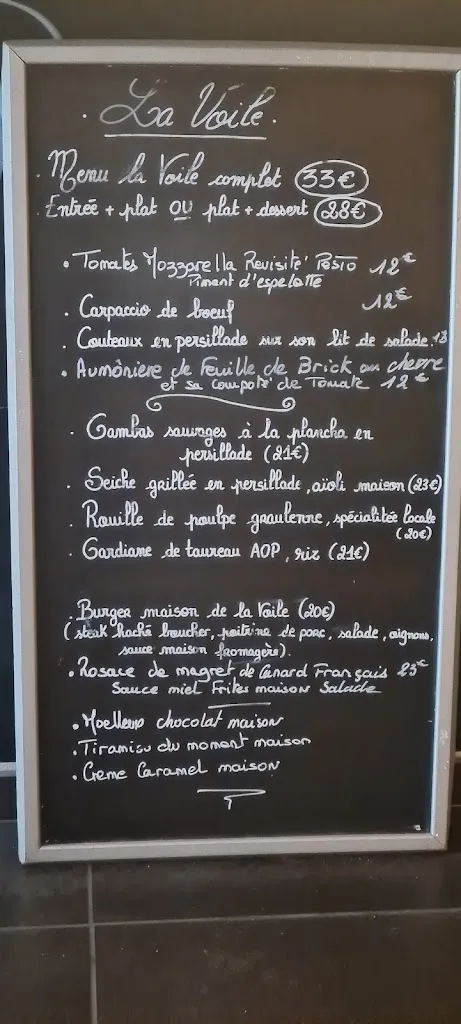 . La Voile.
. Menu la Voile complet 33€
. Entrée + plat OU plat + dessert 28€
. Tomates Mozzarella Revisité Pesto 12€
Piment d'espelette
. Carpaccio de boeuf 12€
. Couteaux en persillade sur son lit de salade. 13
. Aumôniere de Feuille de Brick au chevre
et sa compoté de Tomate 12€
. Gambas sauvages à la plancha en
persillade (21€)
. Seiche grillée en persillade, aïoli maison (23€)
. Rouille de poulpe graulenne, spécialitée locale
(20€)
. Gardiane de taureau AOP, riz (21€)
. Burger maison de la Voile (20€)
(steak haché boucher, poitrine de porc, salade, oignons,
sauce maison fromagère).
. Rosace de magret de Canard Français 23€
Sauce miel Frites maison Salade
. Moelleux chocolat maison
. Tiramisu du moment maison
. Creme Caramel maison